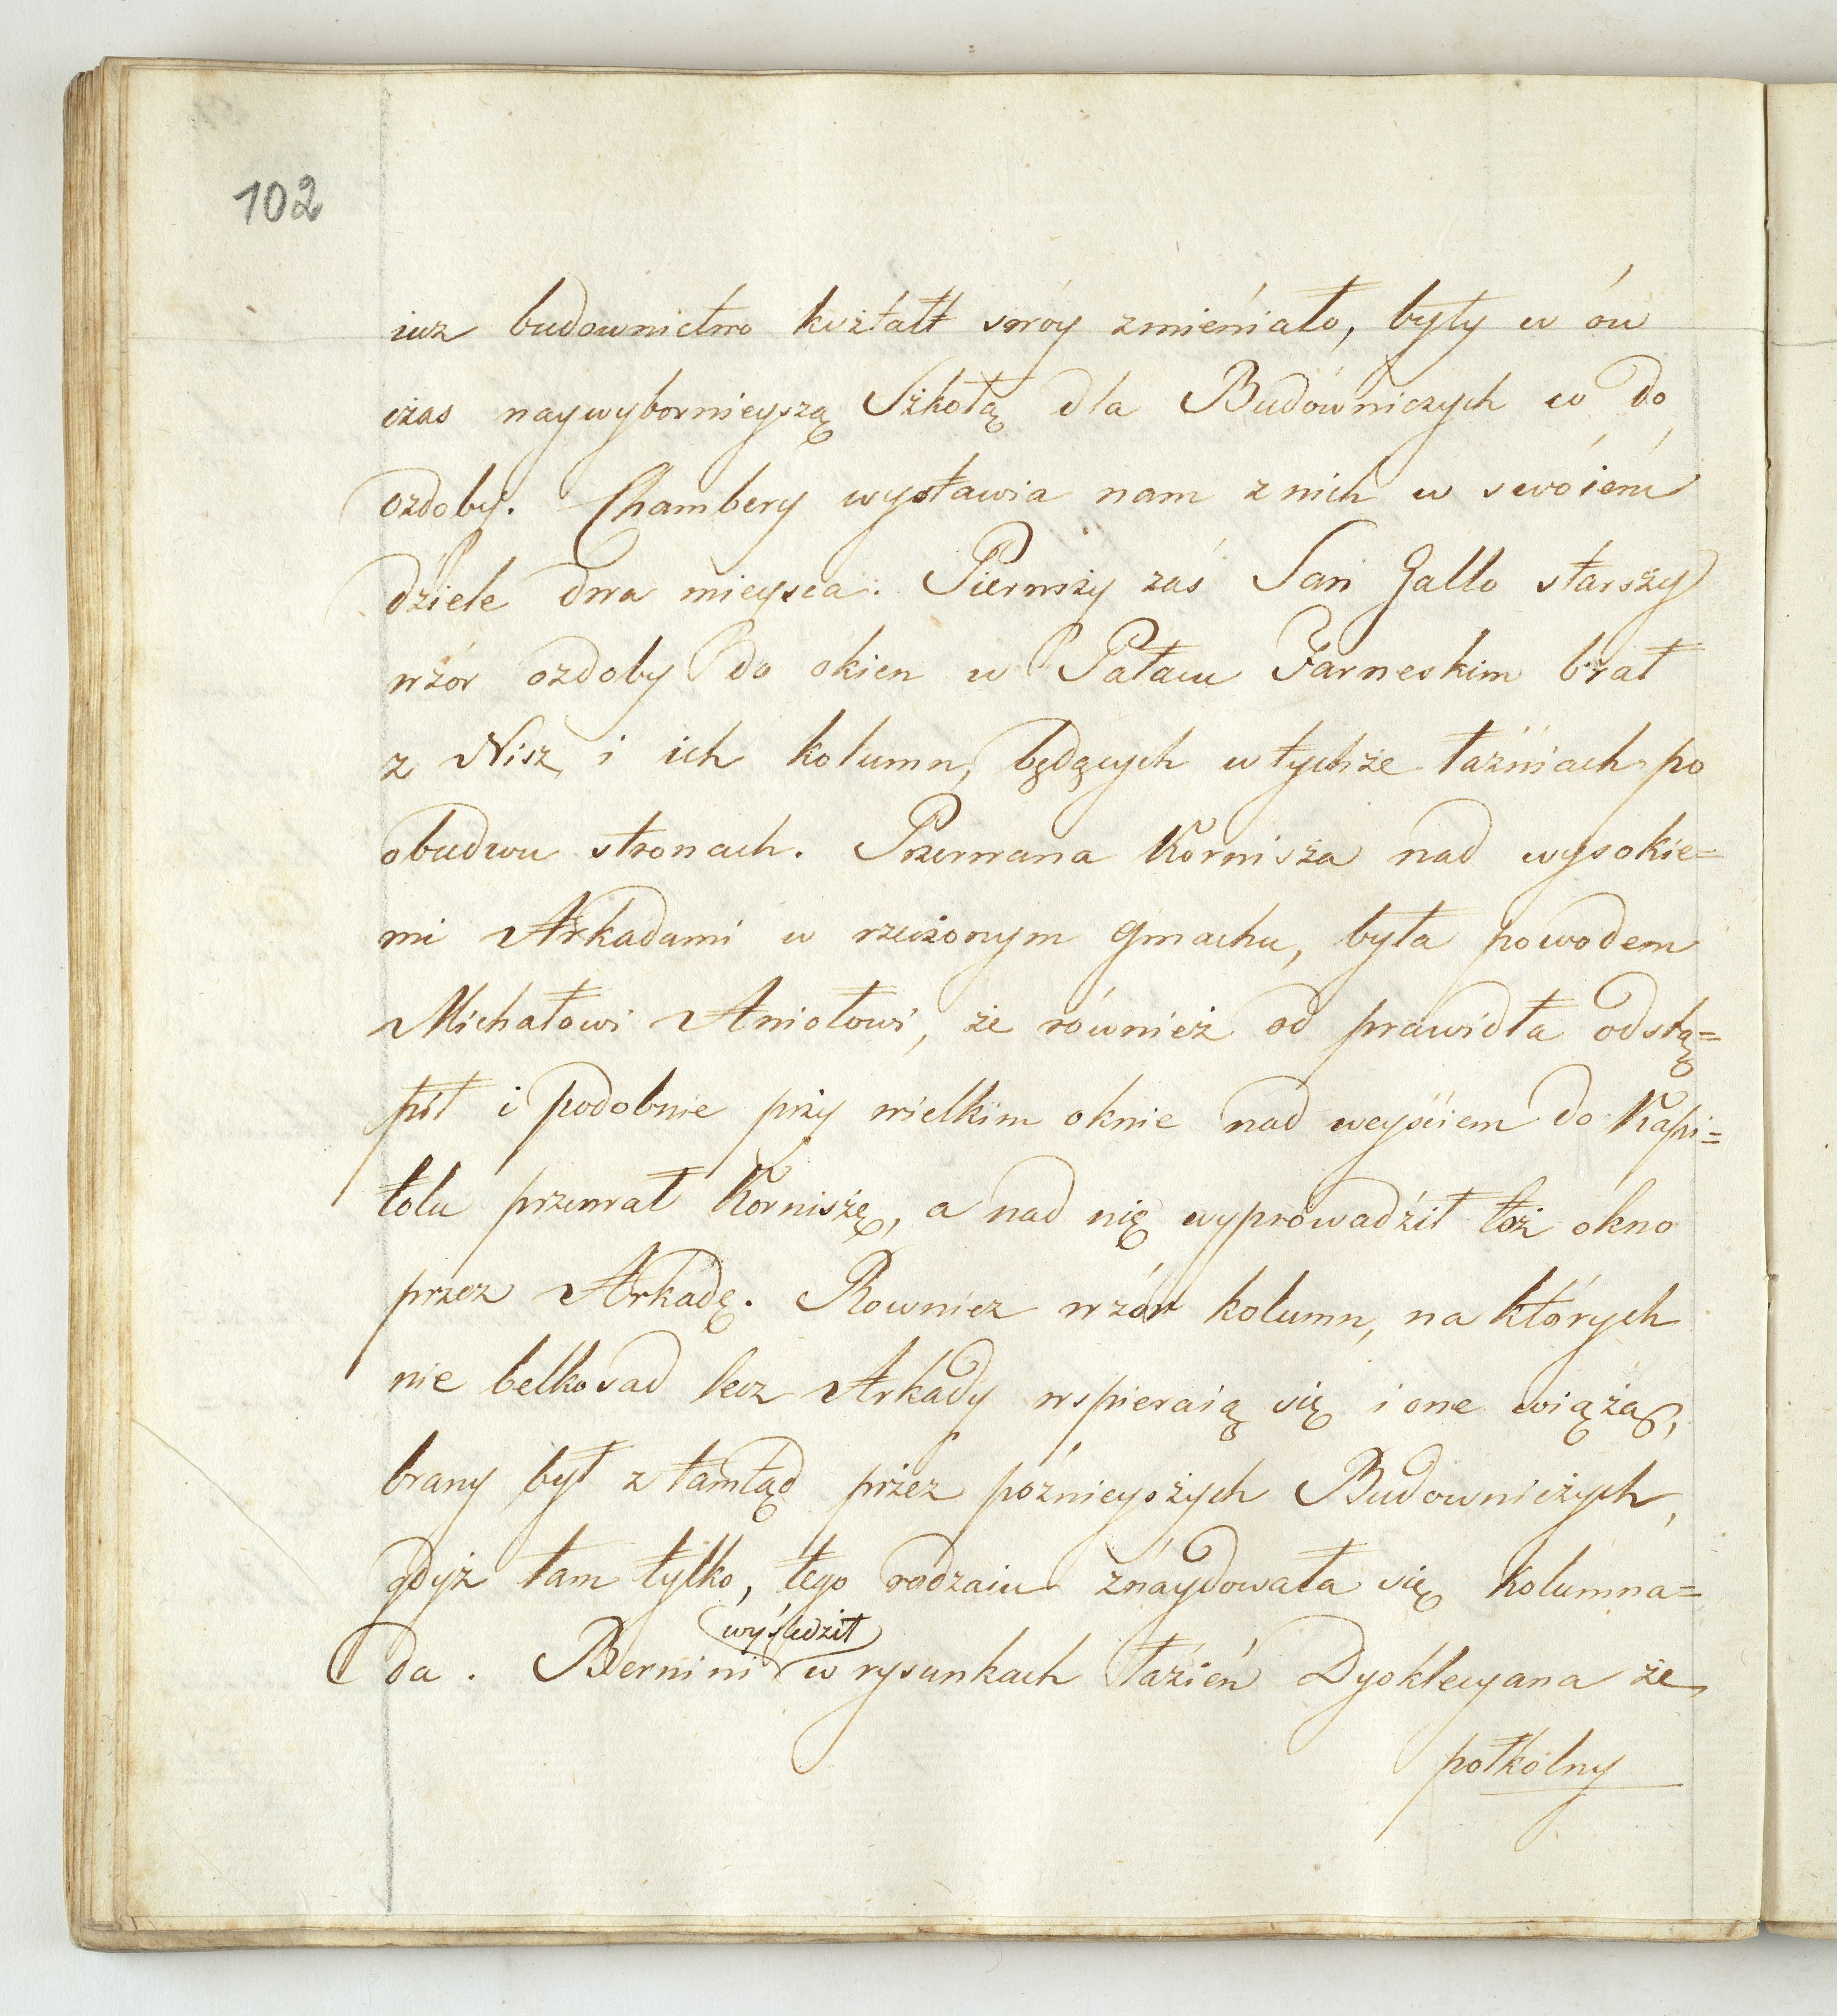 102
iuz budownictwo kształt swóy zmieniało, były w ów
czas naywybornieyszą Szkołą dla Budowniczych w do
ozdoby. Chambery wystawia nam z nich w swoiem
dziele dwa mieysca. Pierwszy zaś San Gallo starszy
wzór ozdoby do okien w Pałacu Farneskim brał
z Nisz, i ich kolumn, będących w tychże łaźniach po
obudwu stronach. Przerwana Kornisza nad wysokie=
mi Arkadami w rzeczonym gmachu, była powodem
Michałowi Aniołowi, że również od prawidła odstą=
pił i podobnie przy wielkim oknie nad weyściem do Kapi=
tolu przerwał Korniszę, a nad nię wyprowadził toż okno
przez Arkadę. Rownież wzór kolumn, na których
nie belkosad lecz Arkady wspieraią się i one wiążą,
brany był z tamtąd przez poźnieyszych Budowniczych,
gdyż tam tylko, tego rodzaiu znaydowała się Kolumna=
wyśledził
da. Bernini w rysunkach łazień Dyoklecyana że
połkolny